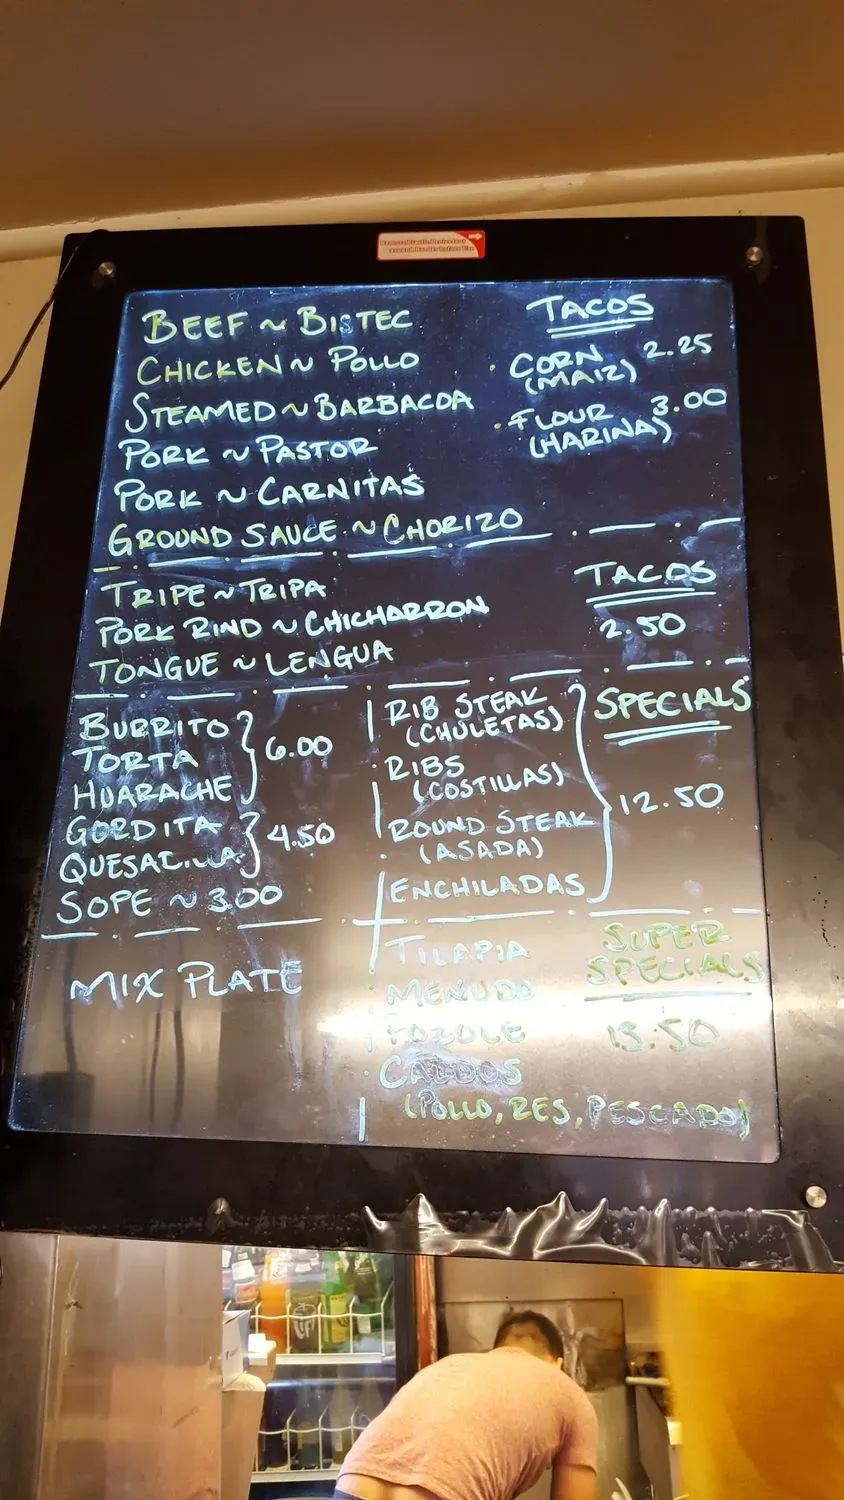 BEEF ~ BISTEC
CHICKEN ~ POLLO
STEAMED ~ BARBACOA
PORK ~ PASTOR
PORK ~ CARNITAS
GROUND SAUCE ~ CHORIZO
TACOS
· CORN 2.25
(MAIZ)
· FLOUR 3.00
(HARINA)
TRIPE ~ TRIPA
PORK RIND ~ CHICHARRON
TONGUE ~ LENGUA
TACOS
2.50
BURRITO
TORTA
HUARACHE
6.00
GORDITA
QUESADILLA
4.50
SOPE ~ 3.00
RIB STEAK
(CHULETAS)
RIBS
(COSTILLAS)
ROUND STEAK
(ASADA)
ENCHILADAS
SPECIALS
12.50
MIX PLATE
TILAPIA
MENUDO
POZOLE
CALDOS
(POLLO, RES, PESCADO)
SUPER
SPECIALS
13.50